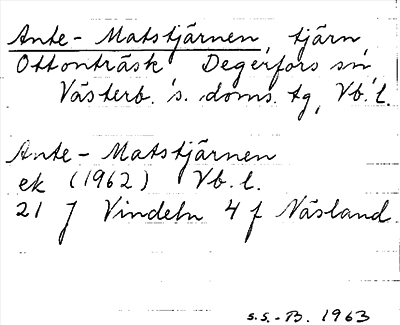 Ante-Matstjärnen, tjärn,
Ottonträsk, Degerfors sn,
Västerb. s. doms. tg, Vb. l.
Ante-Matstjärnen
ek (1962) Vb. l.
21 J Vindeln 4 f Näsland.
S.S.-B. 1963